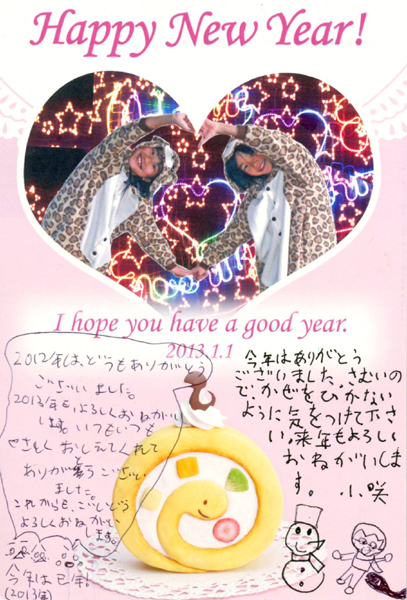 Happy New Year!
I hope you have a good year.
2013.1.1
2012年は、どうもありがとう
ございました。
2013年もよろしくおねがい
します いつもいつも
やさしく おしえてくれて
ありが夢うござい
ました。
これからも、ごしどう
よろしくおねがい
します。
今年は巳年!
(2013年)
今年はありがとう
ございました。さむいの
で、かぜをひかない
ように気をつけて下さ
い。来年もよろしい
おねがいしま
す。 小咲